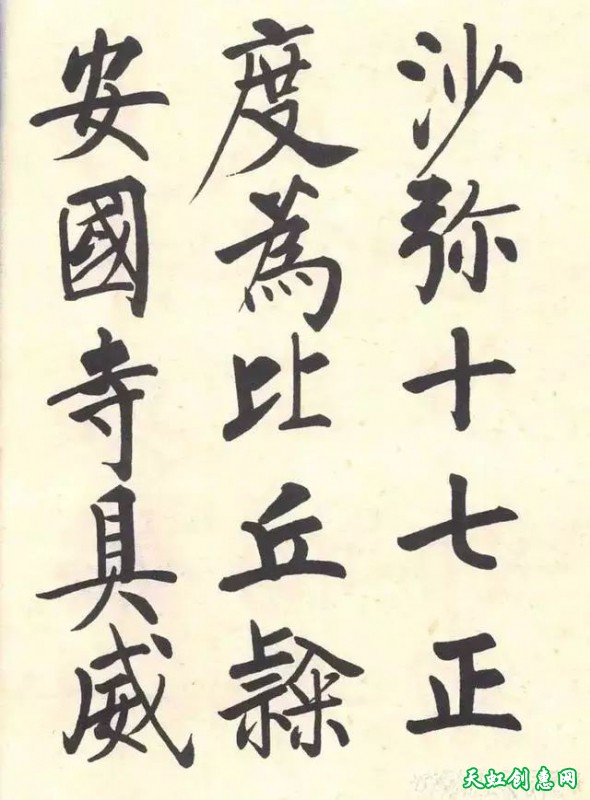 沙弥十七正
度為比丘隸
安國寺具威
天虹创意网